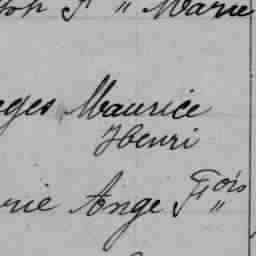 toph F " Marie
ges Maurice
Henri
rie Ange Fois
"